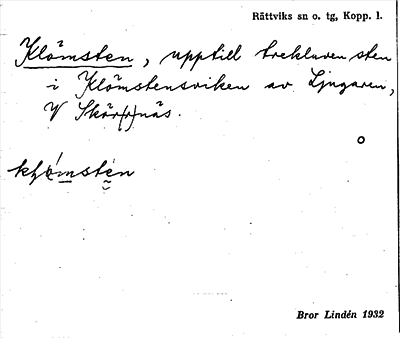 Rättviks sn o. tg, Kopp. l.
Klömsten, upptill trekluven sten
i Klömstensviken av Ljugaren,
V Skär(r)näs.
o
Bror Lindén 1932